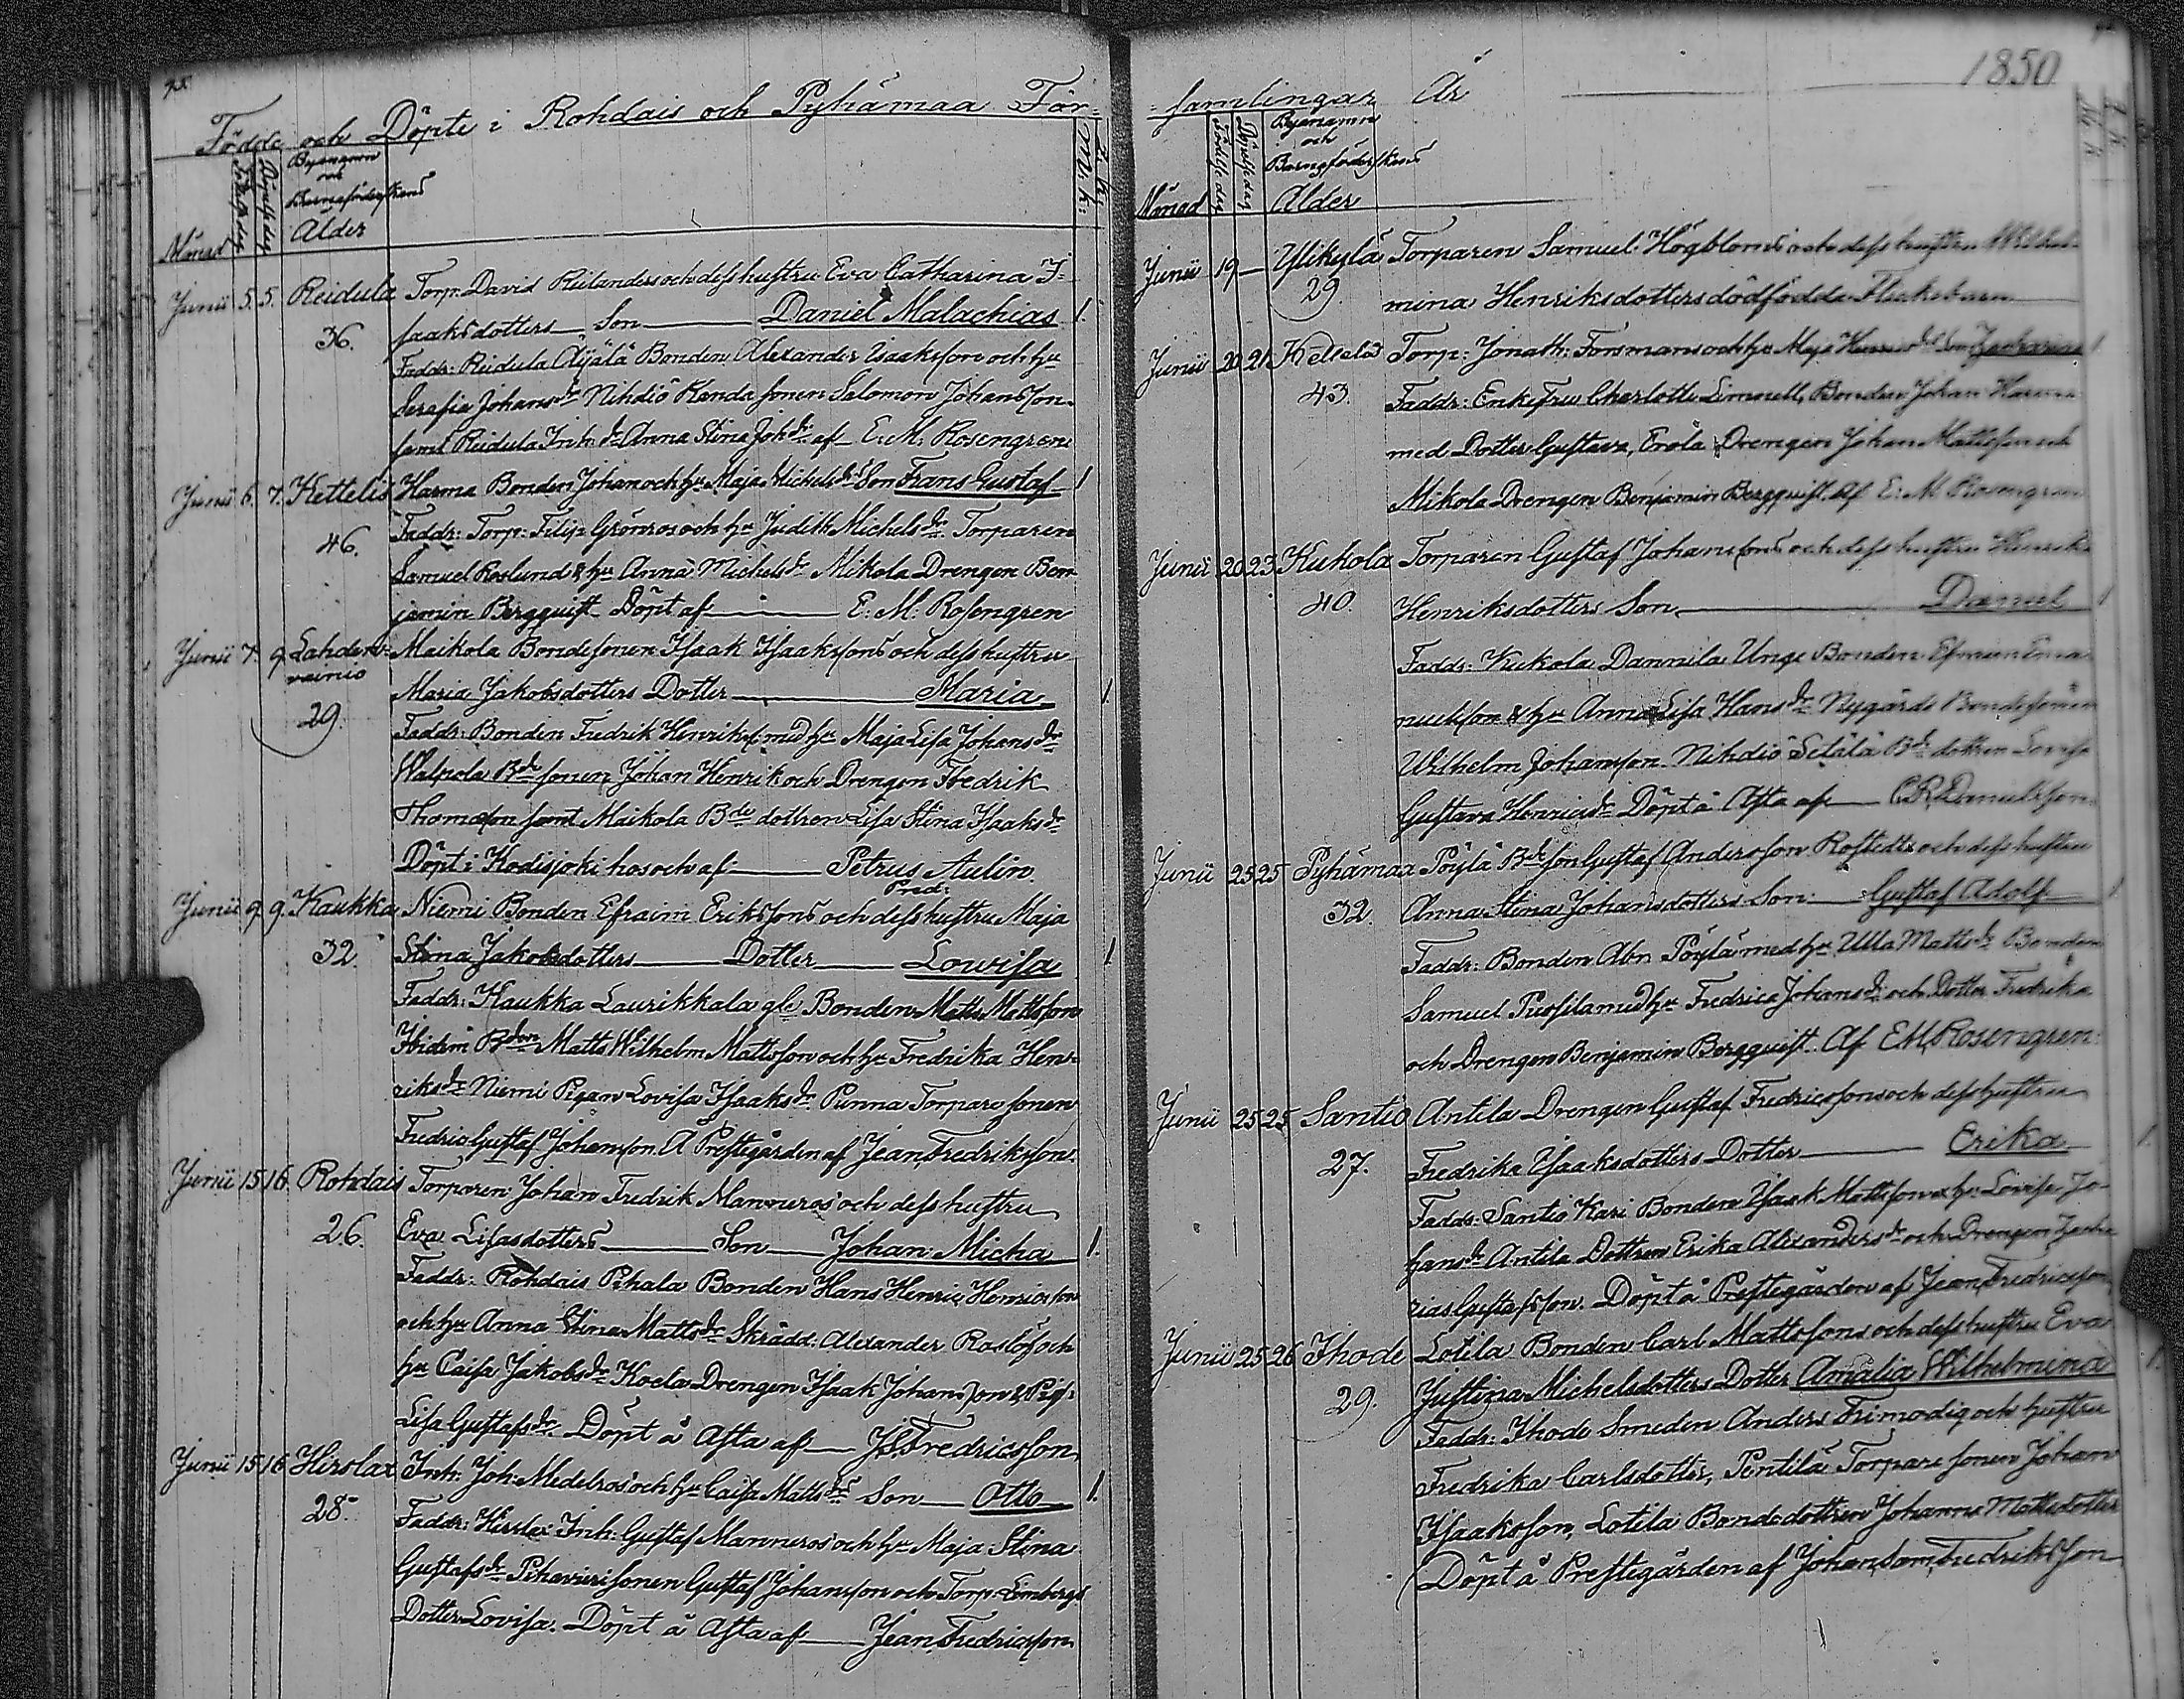 Födde och Döpte i Rohdais och Pyhämaa För-
Månad
Födelsedag
Döpelsedag
Byanamn
och
Barnaföderskans
Ålder
M. k.
Q. k.
Junii 5. 5. Reidula Torp. David Rulanders och dess hustru Eva Catharina I-
36. saaksdotters Son Daniel Malachias 1.
Faddr: Reidula Äijälä Bonden Alexander Isaaksson och hu
Serafia Johansdr Nihdiö Bondasonen Salomon Johansson
samt Reidula Inh. dr Anna Stina Johdr af E: M: Rosengren
Junii 6. 7. Kettelis Harma Bonden Johan och hu Maja Michelsdrs Son Frans Gustaf 1
46. Faddr: Torp: Filip Grönroos och hu Judith Michelsdr Torparen
Samuel Roslund & hu Anna Michelsdr Mikola Drengen Ben-
jamin Bergquist Döpt af E: M: Rosengren
Junii 7. 9. Lahden- Maikola Bondesonen Isaak Isaakssons och dess hustru
vainio Maria Jakobsdotters Dotter Maria 1.
29. Faddr: Bonden Fredrik Henrikss. med hu Maja Lisa Johansdr
Walpola Bde sonen Johan Henrik och Drengen Fredrik
Thomasson samt Maikola Bde dottren Lisa Stina Isaaksdr
Döpt i Kodisjoki hos och af Petrus Aulin
Pred:
Junii 9. 9. Kaukka Niemi Bonden Efraim Erikssons och dess hustru Maja
32. Stina Jakobsdotters Dotter Lowisa 1
Faddr: Kaukka Laurikkala gle Bonden Matts Mattsson
Ihideni Bdesonen Matts Wilhelm Mattsson och hu Fredrika Hen-
riksdr Niemi Pigan Lovisa Isaaksdr Punna Torpare sonen
Fredric Gustaf Johansson. Å Prestegården af Jean Fredriksson.
Junii 15 16 Rohdais Torparen Johan Fredrik Manneros och dess hustru
26. Eva Lisasdotters Son Johan Micha 1.
Faddr: Rohdais Pihala Bonden Hans Henric Henricsson
och hu Anna Stina Mattsdr Skrädd. Alexander Roslöf och
hu Caisa Jakobsdr Koela Drengen Isaak Johansson & Pig:
Lisa Gustafsdr. Döpt å Asta af J S Fredricsson
Junii 15 16 Hirslax Inh: Joh: Medelros och hu Caisa Mattsdrs Son Otto 1.
28. Faddr: Hirslax Inh: Gustaf Manneros och hu Maja Stina
Gustafsdr Pihavieri sonen Gustaf Johansson och Torp: Limbergs
Dotter Lovisa. Döpt å Asta af Jean Fredricsson
-samlingar År 1850
Månad
Födelsedag
Döpelsedag
Byanamn
och
Barnaföderskans
Ålder
M. k.
Q. k.
Junii 19 — Ylikylä Torparen Samuel Högbloms och dess hustru Wilhel-
29. mina Henriksdotters dödfödda Flickebarn
Junii 20 21 Kettelis Torp: Jonath: Forsmans och hu Maja Henricsdrs Son Zacharias 1.
43. Faddr: Enkefru Charlotta Limnell, Bonden Johan Harma
med Dotter Gustava, Erola Drengen Johan Mattsson och
Mikola Drengen Benjamin Bergquist. Af E: M Rosengren
Junii 20 23 Kukola Torparen Gustaf Johanssons och dess hustru Henrika
40. Henriksdotters Son Daniel 1
Faddr: Kukola Dannila Unge Bonden Efraim Ema-
nuelsson & hu Anna Lisa Hansdr Nygårds Bondesonen
Wilhelm Johansson Nihdiö Setälä Bde dottren Lovisa
Gustava Henricsdr Döpt å Asta af C R Danielsson
Junii 25 25 Pyhämaa Pöylä Bde son Gustaf Andersson Rostedts och dess hustru
32. Anna Stina Johansdotters Son Gustaf Adolf 1
Faddr: Bonden Abr. Pöylä med hu Ulla Mattsdr Bonden
Samuel Pussila med hu Fredrica Johansdr och Dotter Fredrika
och Drengen Benjamin Bergquist. Af E M Rosengren
Junii 25 25 Santio Antila Drengen Gustaf Fredricssons och dess hustru
27. Fredrika Isaaksdotters Dotter Erika 1.
Faddr: Santio Kari Bonden Isaak Mattsson & hu Lovisa Jo-
hansdr Antila Dottren Erika Alexandersdr och Drengen Zacha-
rias Gustafsson. Döpt å Prestegården af Jean Fredricsson
Junii 25 26 Ihode Lotila Bonden Carl Mattssons och dess hustru Eva
29. Justina Michelsdotters Dotter Amalia Wilhelmina 1.
Faddr: Ihode Smeden Anders Frimodig och hustru
Fredrika Carlsdotter, Pentilä Torpare sonen Johan
Isaaksson, Lotila Bondedottren Johanna Mattsdotter
Döpt å Prestegården af Johan Sam. Fredriksson